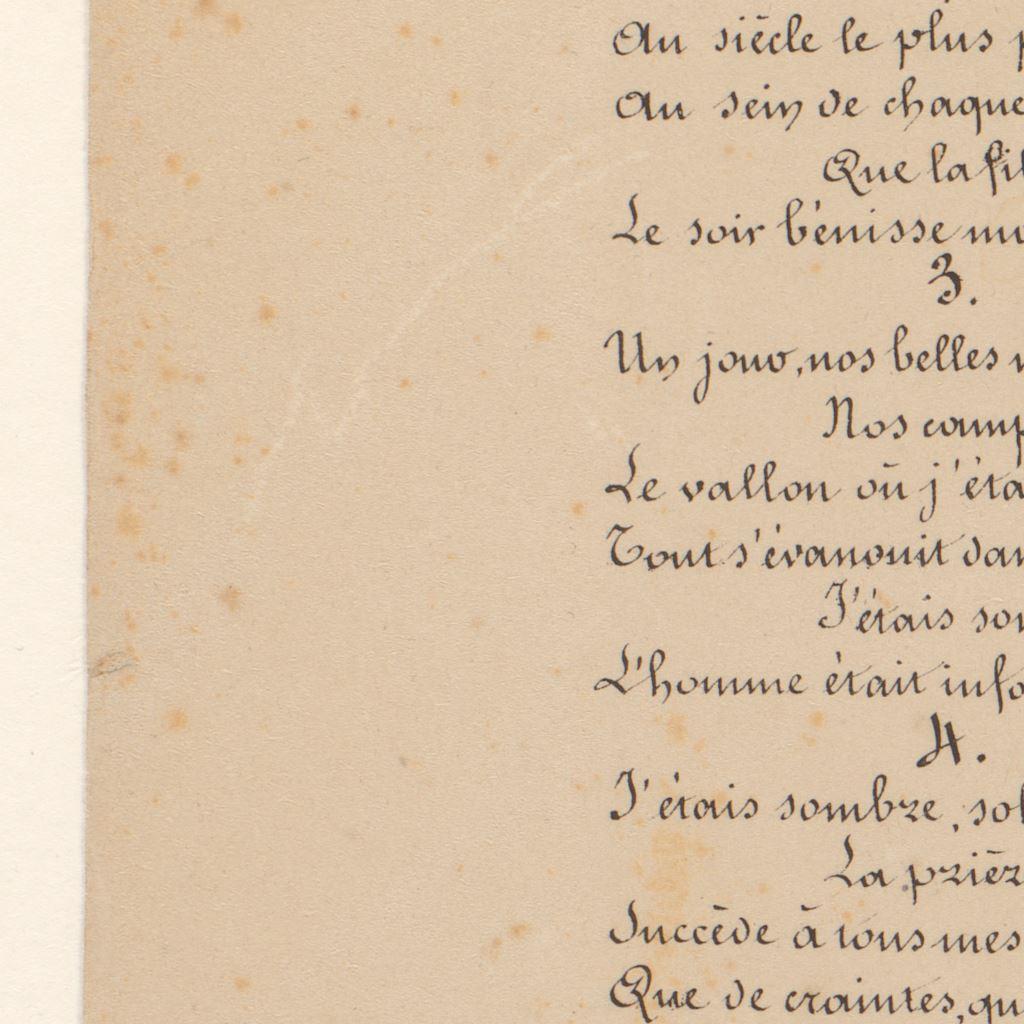 Au siècle le plus p
Au sein de chaque
Que la fil
Le soir bénisse mu
3.
Un jour, nos belles v
Nos camp
Le vallon où j'éta
Tout s'évanouit dan
J'étais son
L'homme était info
4.
J'étais sombre, sol
La prièr
Succède à tous mes
Que de craintes, qu